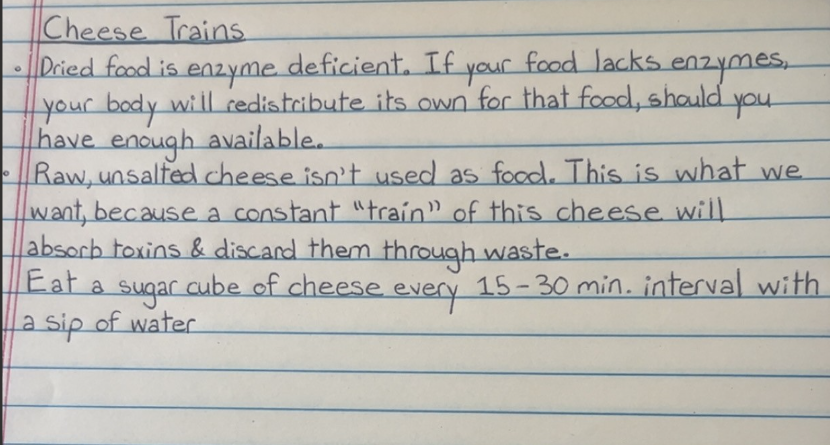 Cheese Trains
• Dried food is enzyme deficient. If your food lacks enzymes,
your body will redistribute its own for that food, should you
have enough available.
• Raw, unsalted cheese isn't used as food. This is what we
want, because a constant "train" of this cheese will
absorb toxins & discard them through waste.
Eat a sugar cube of cheese every 15-30 min. interval with
a sip of water